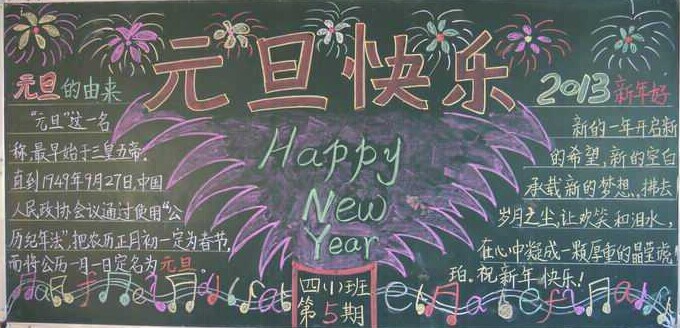 元旦快乐
元旦的由来
"元旦"这一名
称,最早始于三皇五帝.
直到1949年9月27日,中国
人民政协会议通过使用"公
历纪年法",把农历正月初一定为春节,
而将公历一月一日定名为元旦。
Happy
New
Year
四(1)班
第5期
2013新年好
新的一年开启新
的希望,新的空白
承载新的梦想.拂去
岁月之尘,让欢笑和泪水,
在心中凝成一颗厚重的晶莹琥
珀.祝新年快乐!